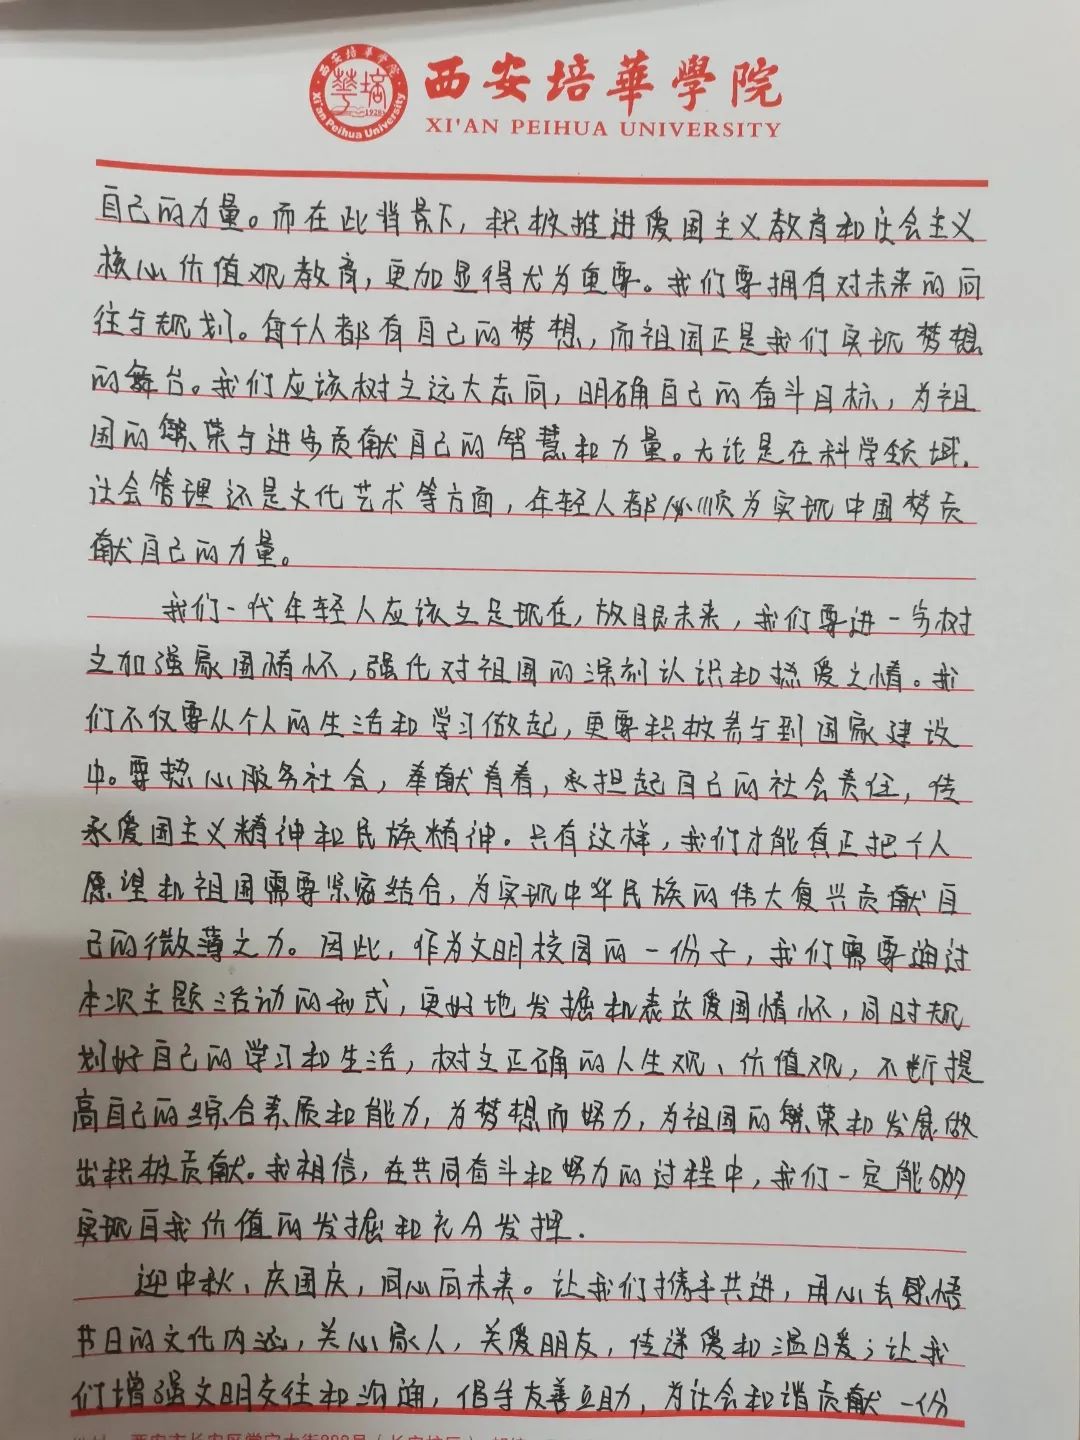 西安培華學院
XI'AN PEIHUA UNIVERSITY
西安培華學院
Xi'an Peihua University
1928
自己的力量。而在此背景下，积极推进爱国主义教育和社会主义
核心价值观教育，更加显得尤为重要。我们要拥有对未来的向
往与规划。每个人都有自己的梦想，而祖国正是我们实现梦想
的舞台。我们应该树立远大志向，明确自己的奋斗目标，为祖
国的繁荣与进步贡献自己的智慧和力量。无论是在科学领域、
社会管理还是文化艺术等方面，年轻人都必须为实现中国梦贡
献自己的力量。
我们一代年轻人应该立足现在，放眼未来，我们要进一步树
立加强家国情怀，强化对祖国的深刻认识和热爱之情。我
们不仅要从个人的生活和学习做起，更要积极参与到国家建设
中。要热心服务社会，奉献青春，承担起自己的社会责任，传
承爱国主义精神和民族精神。只有这样，我们才能真正把个人
愿望和祖国需要紧密结合，为实现中华民族的伟大复兴贡献自
己的微薄之力。因此，作为文明校园的一份子，我们需要通过
本次主题活动的形式，更好地发掘和表达爱国情怀，同时规
划好自己的学习和生活，树立正确的人生观、价值观，不断提
高自己的综合素质和能力，为梦想而努力，为祖国的繁荣和发展做
出积极贡献。我相信，在共同奋斗和努力的过程中，我们一定能够
实现自我价值的发掘和充分发挥.
迎中秋、庆国庆，同心向未来。让我们携手共进，用心去感悟
节日的文化内涵，关心家人，关爱朋友，传递爱和温暖；让我
们增强文明交往和沟通，倡导友善互助，为社会和谐贡献一份